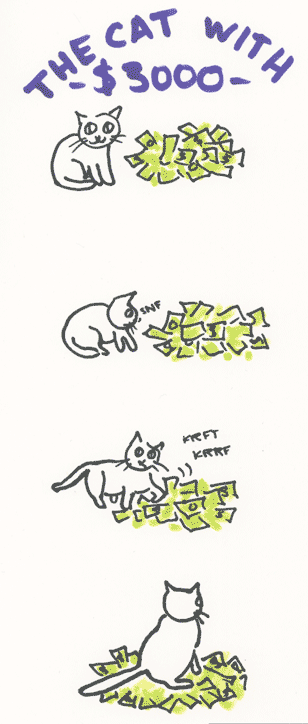 THE CAT WITH
-$3000-
SNF
KRFT
KRRF